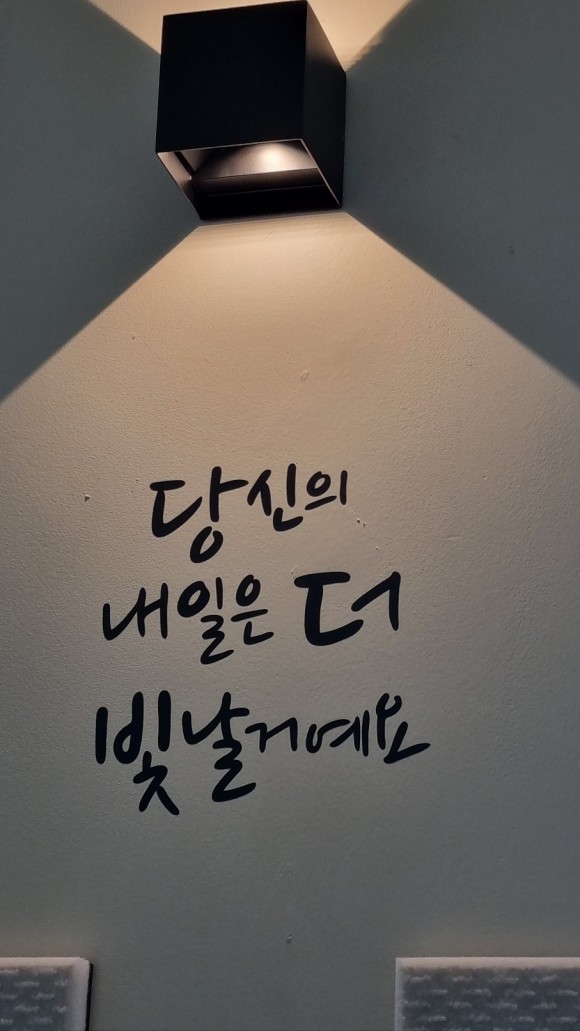 당신의
내일은 더
빛날거예요